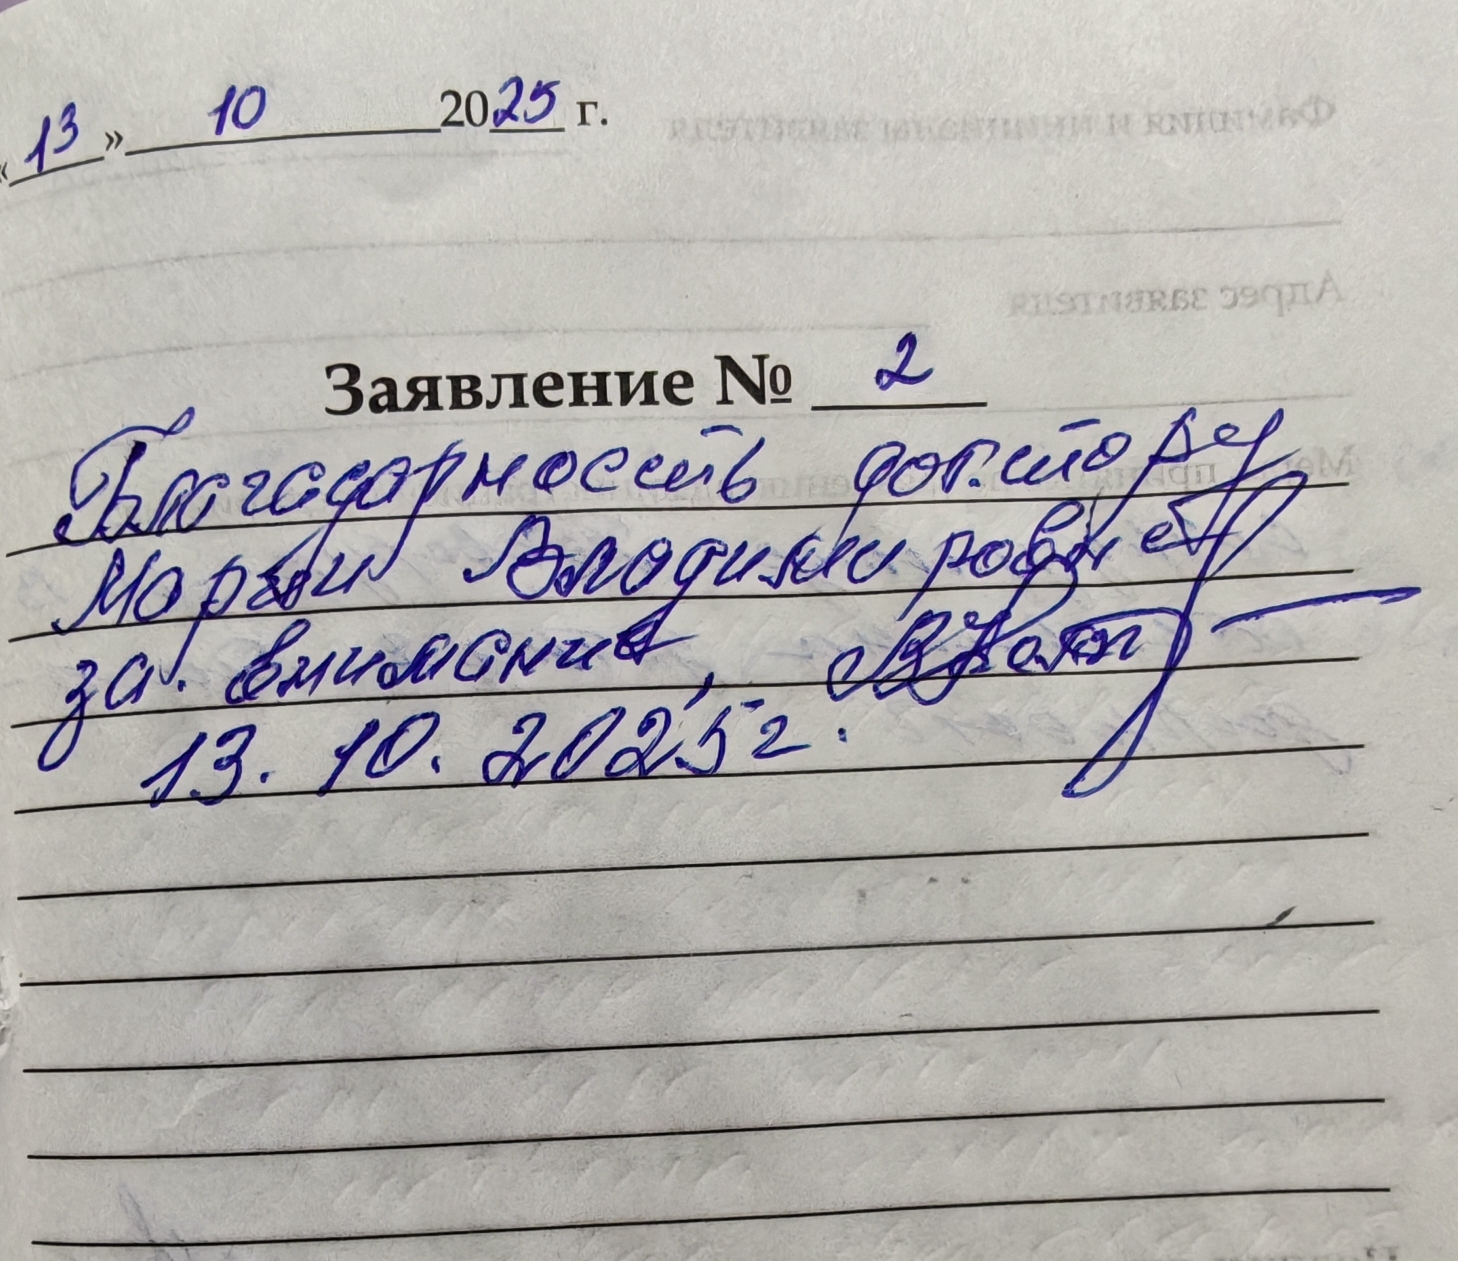 «13» 10 2025 г.
Заявление № 2
Благодарность доктору
Марии Владимировне
за внимание,
13.10.2025г.